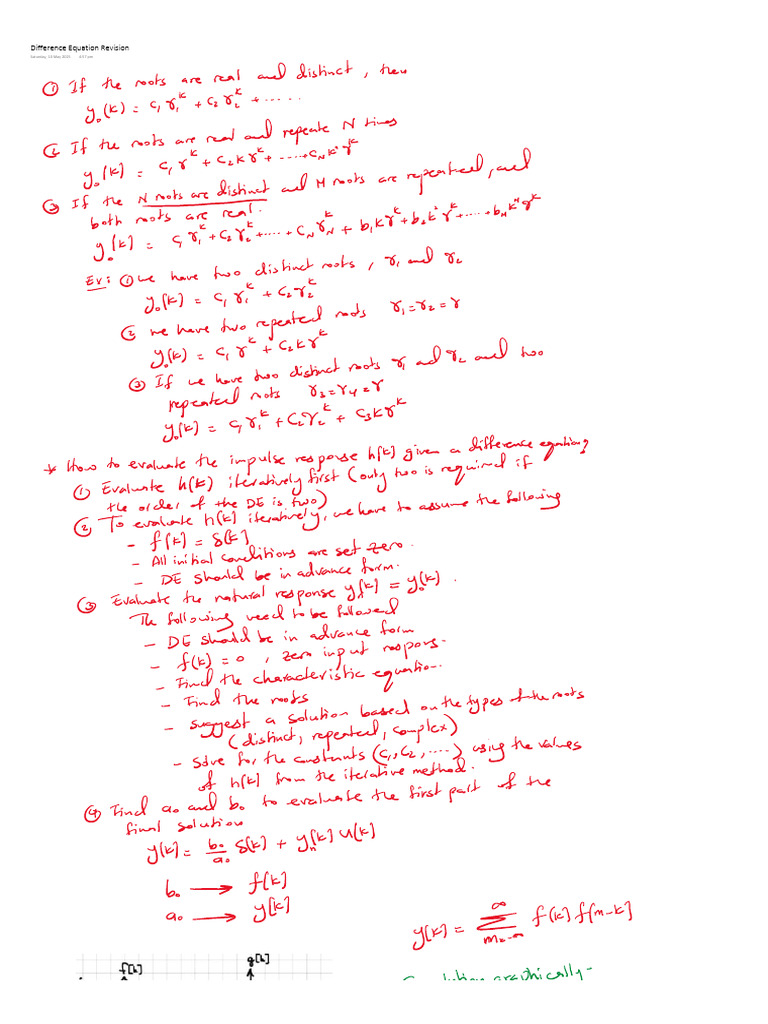 Difference Equation Revision
① If the roots are real and distinct, then
y₀(k) = c₁ γ₁ᵏ + c₂ γ₂ᵏ + ......
② If the roots are real and repeate N times
y₀(k) = c₁ γᵏ + c₂ k γᵏ + ..... + c_N kᴺ γᵏ
③ If the N roots are distinct and M roots are repeated, and
both roots are real.
y₀[k] = c₁ γ₁ᵏ + c₂ γ₂ᵏ + .... + c_N γ_Nᵏ + b₁ k γᵏ + b₂ k² γᵏ + .... + b_M kᴺ γᵏ
Ex: ① we have two distinct roots, γ₁ and γ₂
y₀[k] = c₁ γ₁ᵏ + c₂ γ₂ᵏ
② we have two repeated roots γ₁ = γ₂ = γ
y₀(k) = c₁ γᵏ + c₂ k γᵏ
③ If we have two distinct roots γ₁ and γ₂ and two
repeated roots γ₃ = γ₄ = γ
y₀[k] = c₁ γ₁ᵏ + c₂ γ₂ᵏ + c₃ k γᵏ
* How to evaluate the impulse response h[k] given a difference equation?
① Evaluate h(k) iteratively first (only two is required if
the order of the DE is two)
② To evaluate h[k] iteratively, we have to assume the following
- f[k] = δ[k]
- All initial conditions are set zero.
- DE should be in advance form.
③ Evaluate the natural response yₙ[k] = y₀(k).
The following need to be followed
- DE should be in advance form
- f(k) = 0, zero input respons.
- Find the characteristic equation.
- Find the roots
- suggest a solution based on the types of the roots
(distinct, repeated, complex)
- Solve for the constants (c₁, c₂, ....) using the values
of h[k] from the iterative method.
④ Find a₀ and b₀ to evaluate the first part of the
final solution
y[k] = b₀/a₀ δ(k) + yₙ[k] u[k]
b₀ → f[k]
a₀ → y[k]
y[k] = ∞ Σ m=-∞ f(k] f[m-k]
f[k] g[k]
graphically-